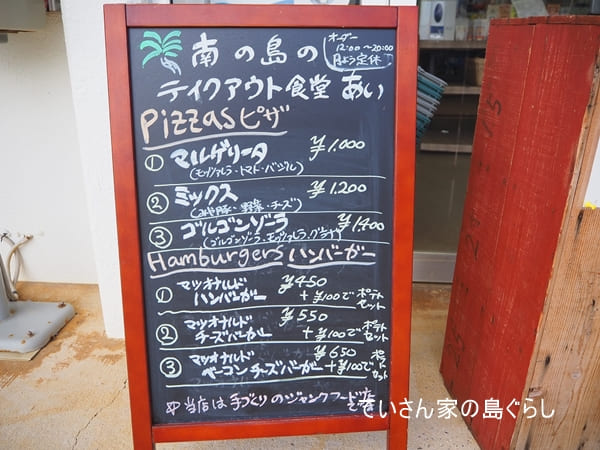 南の島の
オーダー
12:00～20:00
月よう定休
テイクアウト食堂 あい
Pizzas ピザ
① マルゲリータ ¥1.000
(モッツァレラ・トマト・バジル)
② ミックス ¥1.200
(みや豚・野菜・チーズ)
③ ゴルゴンゾーラ ¥1.400
(ゴルゴンゾーラ・モッツァレラ・グラナ)
Hamburgers ハンバーガー
① マツオナルド ¥450
ハンバーガー +¥100で ポテトセット
② マツオナルド ¥550
チーズバーガー +¥100で ポテトセット
③ マツオナルド ¥650
ベーコンチーズバーガー +¥100で ポテトセット
当店は手づくりのジャンクフード店
ていさん家の島ぐらし